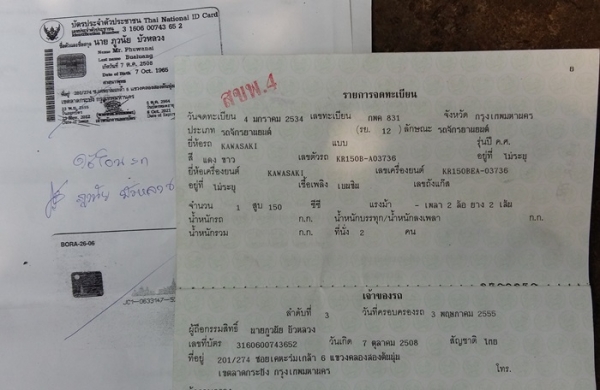 บัตรประจำตัวประชาชน Thai National ID Card
3 1606 00743 65 2
นาย ภูวนัย บัวหลวง
Name Mr. Phuwanai
Last name Bualuang
เกิดวันที่ 7 ต.ค. 2508
Date of Birth 7 Oct. 1965
ใช้โอน
ภูวนัย บัวหลวง
BORA-26-06
สขพ.4
รายการจดทะเบียน
วันจดทะเบียน 4 มกราคม 2534 เลขทะเบียน กตค 831 จังหวัด กรุงเทพมหานคร
ประเภท รถจักรยานยนต์ (รย. 12) ลักษณะ รถจักรยานยนต์
ยี่ห้อรถ KAWASAKI แบบ รุ่นปี ค.ศ.
สี แดง ขาว เลขตัวรถ KR150B-A03736 อยู่ที่ ไม่ระบุ
ยี่ห้อเครื่องยนต์ KAWASAKI เลขเครื่องยนต์ KR150BEA-03736
อยู่ที่ ไม่ระบุ เชื้อเพลิง เบนซิน เลขถังแก๊ส
จำนวน 1 สูบ 150 ซีซี แรงม้า - เพลา 2 ล้อ ยาง 2 เส้น
น้ำหนักรถ ก.ก. น้ำหนักบรรทุก/น้ำหนักลงเพลา ก.ก.
น้ำหนักรวม ก.ก. ที่นั่ง 2 คน
เจ้าของรถ
ลำดับที่ 3 วันที่ครอบครองรถ 3 พฤษภาคม 2555
ผู้ถือกรรมสิทธิ์ นายภูวนัย บัวหลวง
เลขที่บัตร 3160600743652 วันเกิด 7 ตุลาคม 2508 สัญชาติ ไทย
ที่อยู่ 201/274 ซอยเคหะร่มเกล้า 6 แขวงคลองสองต้นนุ่น
เขตลาดกระบัง กรุงเทพมหานคร โทร.